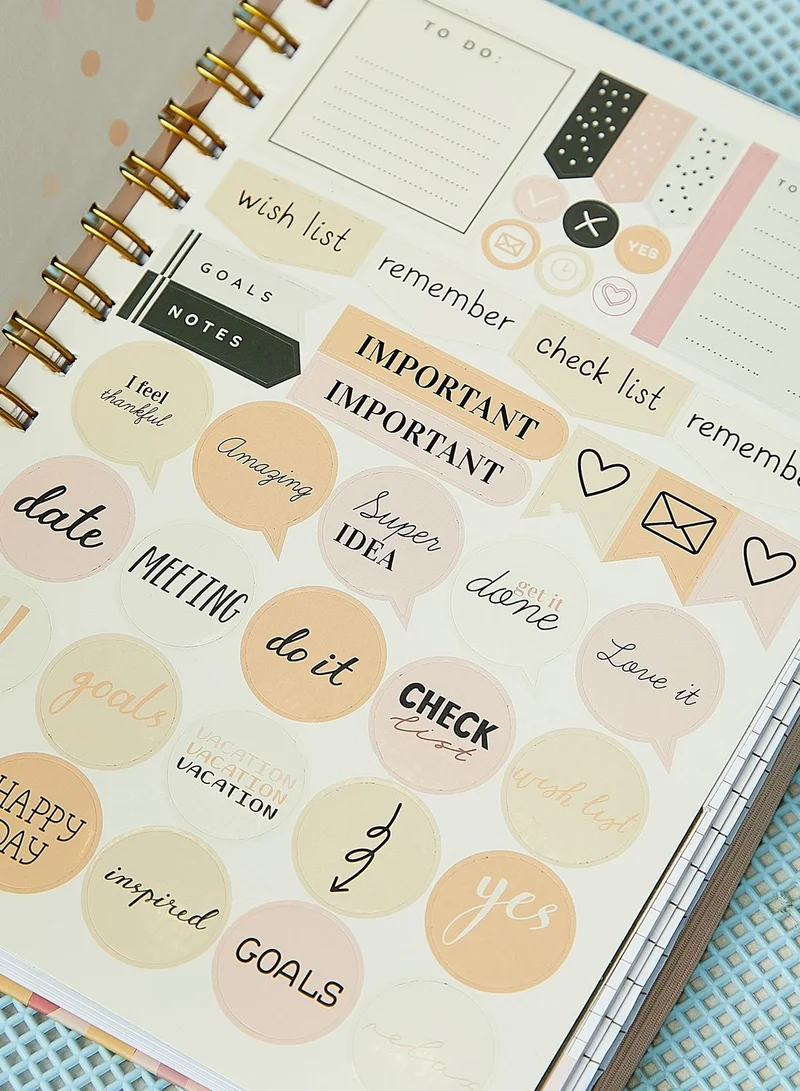 TO DO:
TO
YES
wish list
remember
check list
rememb
GOALS
NOTES
IMPORTANT
IMPORTANT
I feel
thankful
Amazing
Super
IDEA
get it
done
Love it
date
MEETING
do it
CHECK
list
wish list
goals
VACATION
VACATION
VACATION
yes
HAPPY
DAY
inspired
GOALS
relax